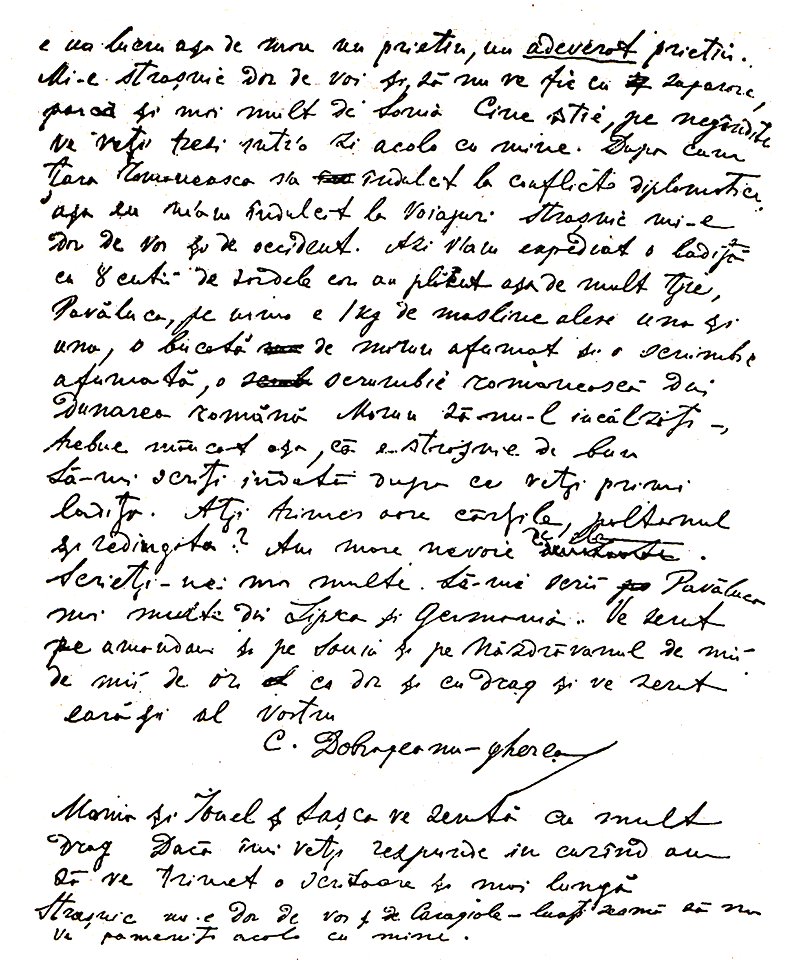 e un lucru așa de mare un prietin, un adevěrat prietin.
Mi-e strașnic dor de voi și, să nu ve fie cu supărare,
parcă și mai mult de Sonia Cine știe, pe negândite
ve veți trezi într'o zi acolo cu mine. Dupa cum
Țara Romanească sa îndulcit la conflicte diplomatice,
așa eu m'am îndulcit la voiajuri strașnic mi-e
dor de voi și de occident. Azi v'am expediat o ladiță
cu 8 cutii de sardele cari au plăcut așa de mult ție,
Pavăluca, pe urma e 1 kg de masline alese una și
una, o bucată de morun afumat și o scrumbie
afumată, o scrumbie românească din
Dunarea română Morun să-nu-l incălziți -,
trebue mâncat așa, că e strașnic de bun
Să-mi scriți indată dupa ce veți primi
ladița. Ați trimes oare cărțile, paltonul
și redingota? Am mare nevoie de ele.
Scrieți-ne mai multe. Să-mi scrii Pavăluca
mai multe din Lipca și Germania. Ve serut
pe amandoi și pe Sonia și pe Năzdrăvanul de mii
de mii de ori cu dor și cu drag și ve serut
eară și al vostru
C. Dobrogeanu-Gherea
Maria și Ionel și Sașca ve serută cu mult
drag Dacă îmi veți respunde in curînd am
să ve trimet o scrisoare și mai lungă
Strașnic mi-e dor de voi și de Caragiale - luați samă să nu
ve pomeniți acolo cu mine.